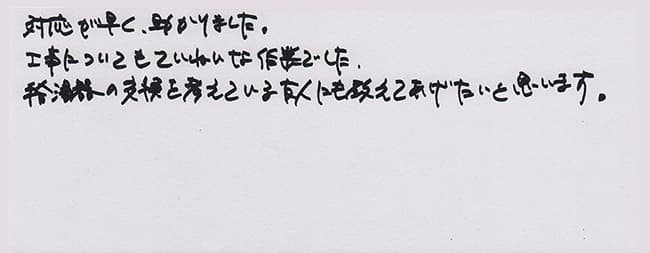 対応が早く、助かりました。
工事についてもていねいな作業でした。
給湯器の交換を考えている友人にも教えてあげたいと思います。